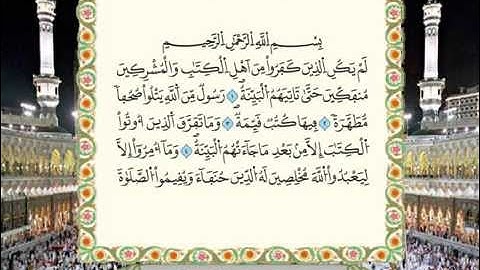 بِسْمِ اللَّهِ الرَّحْمَٰنِ الرَّحِيمِ
لَمْ يَكُنِ الَّذِينَ كَفَرُوا مِنْ أَهْلِ الْكِتَابِ وَالْمُشْرِكِينَ
مُنفَكِّينَ حَتَّىٰ تَأْتِيَهُمُ الْبَيِّنَةُ ١ رَسُولٌ مِّنَ اللَّهِ يَتْلُو صُحُفًا
مُّطَهَّرَةً ٢ فِيهَا كُتُبٌ قَيِّمَةٌ ٣ وَمَا تَفَرَّقَ الَّذِينَ أُوتُوا
الْكِتَابَ إِلَّا مِن بَعْدِ مَا جَاءَتْهُمُ الْبَيِّنَةُ ٤ وَمَا أُمِرُوا إِلَّا
لِيَعْبُدُوا اللَّهَ مُخْلِصِينَ لَهُ الدِّينَ حُنَفَاءَ وَيُقِيمُوا الصَّلَوٰةَ